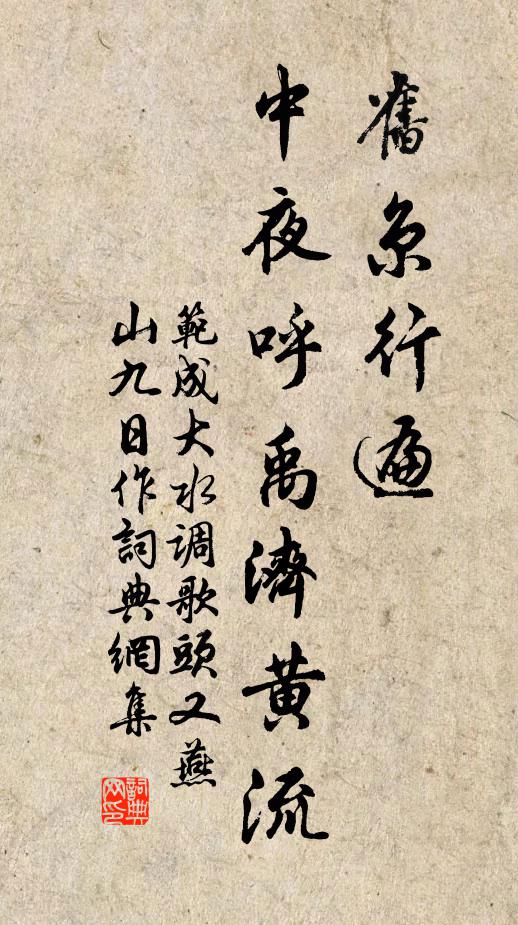 舊京行遍
中夜呼禹濟黄流
範成大水调歌頭又燕
山九日作詞典網集
詞典
网印